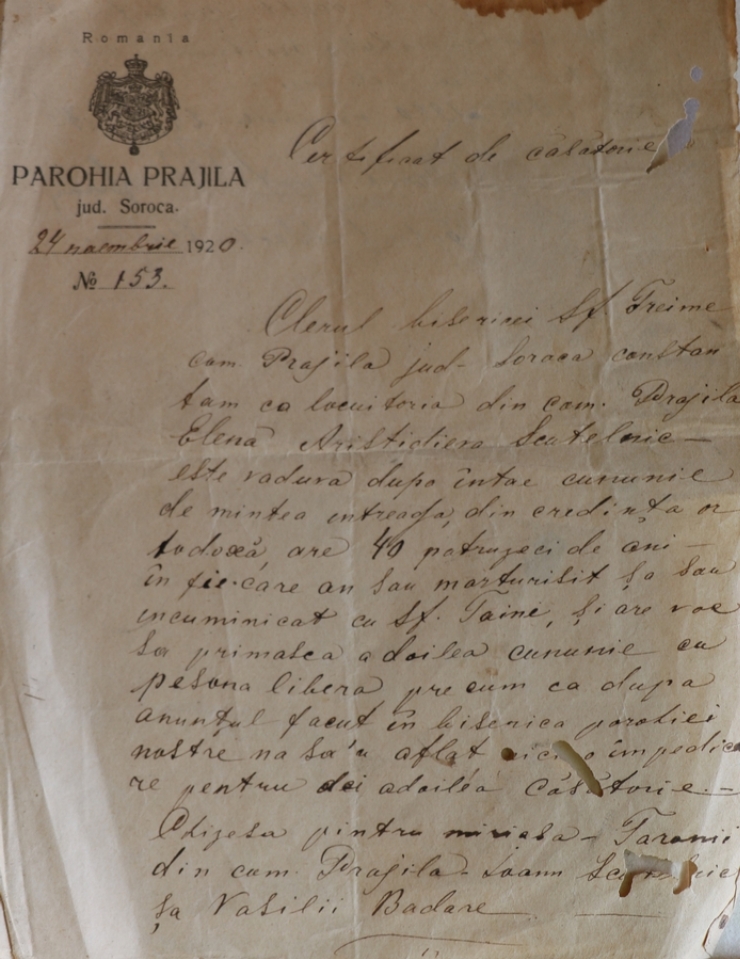 Romania
PAROHIA PRAJILA
jud. Soroca.
24 noembrie 1920.
№ 153.
Certificat de căsătorie
Clerul bisericei Sf. Treime
com. Prajila jud. Soroca constan
tam ca locuitoria din com. Prajila
Elena Aristidiera Scutelnic —
este vaduva dupa întăe cununie
de mintea intreaga, din credința or
todoxă, are 40 patruzeci de ani —
în fie-care an sau marturisit șa sau
incuminicat cu Sf. Taine, și are voe
sa primasca adoilea cununie cu
pesona libera precum ca dupa
anunțul facut în biserica parohiei
nostre na sa'u aflat nici o impedica
re pentru adoilea căsătorie. —
Chizesa pintru miriasa — Taranii
din com. Prajila — Ioann
șa Vasilii Badare —